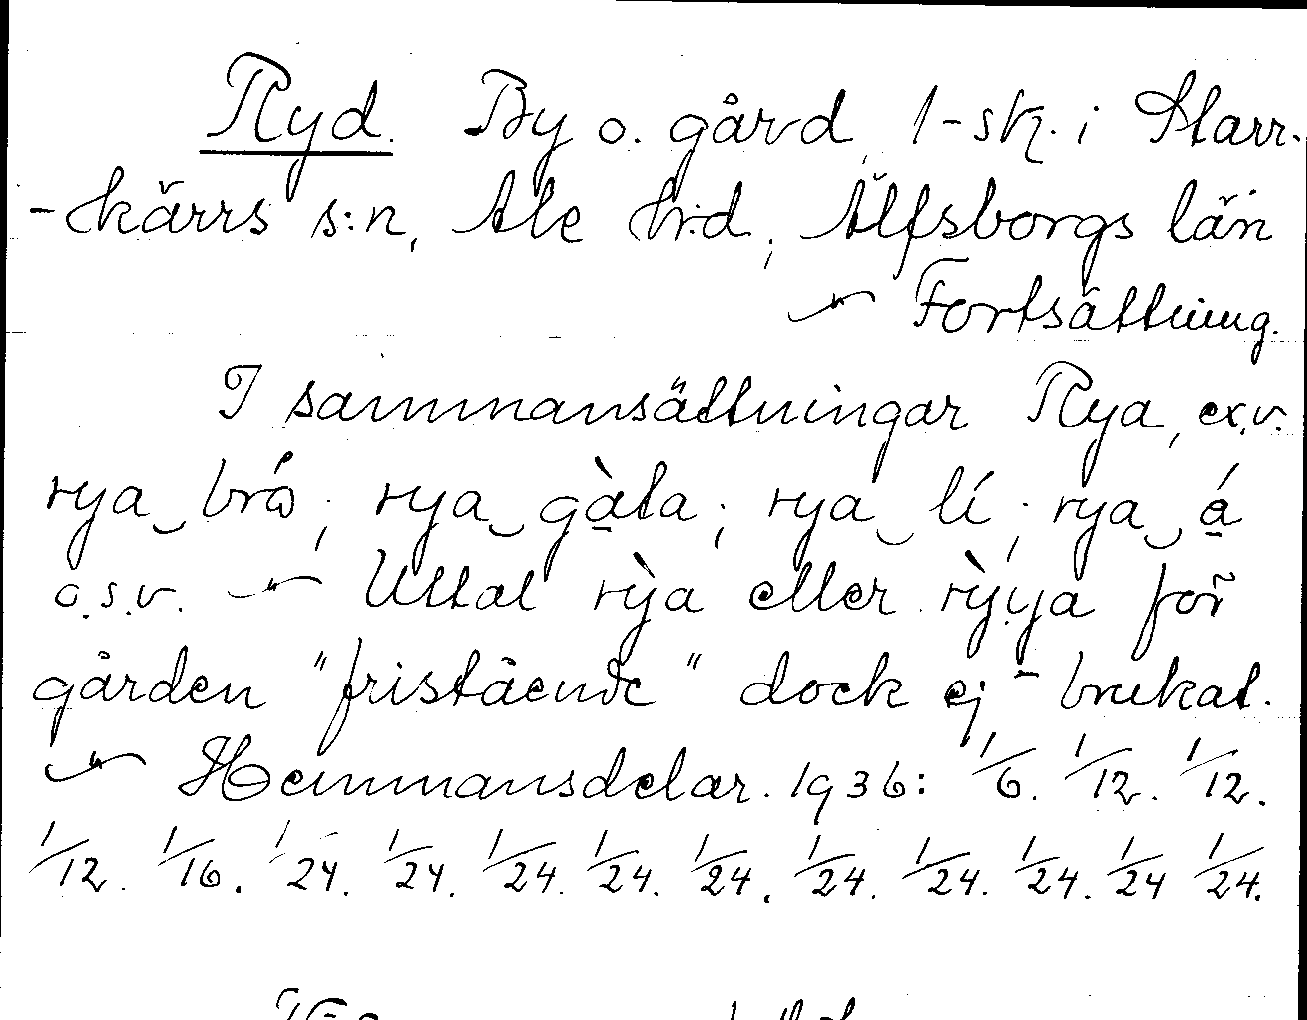 Ryd. By o. gård, 1-sk. i Starr-
-kärrs s:n, Ale hr:d, Älfsborgs län
~ Fortsättning.
I sammansättningar Rya, ex.v.
rya brǻ; rya gàta; rya lí; rya á
o.s.v. ~ Uttal rỳa eller rỳya för
gården "fristående" dock ej brukat.
~ Hemmansdelar 1936: 1/6. 1/12. 1/12.
1/12. 1/16. 1/24. 1/24. 1/24. 1/24. 1/24. 1/24. 1/24. 1/24. 1/24 1/24.